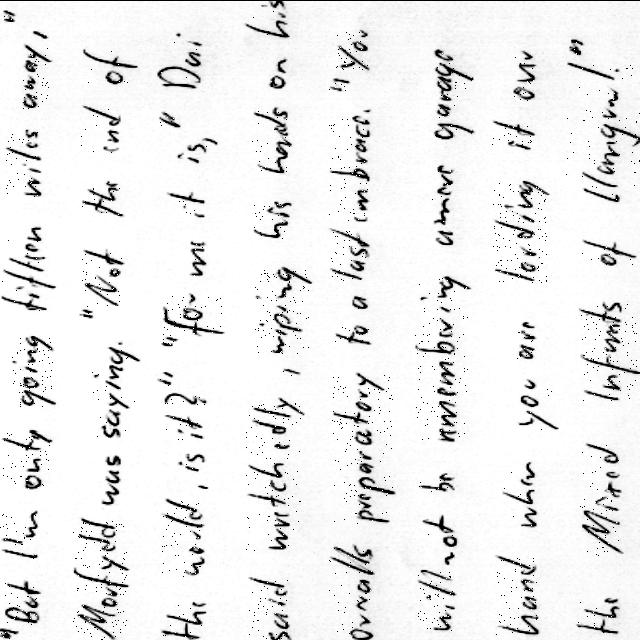 "But I'm only going fifteen miles away,"
Morfydd was saying. "Not the end of
the world, is it?" "For me it is," Dai
said wretchedly, wiping his hands on his
overalls preparatory to a last embrace. "You
will not be remembering a mere garage
hand when you are lording it over
the Mixed Infants of Llangrwl!"